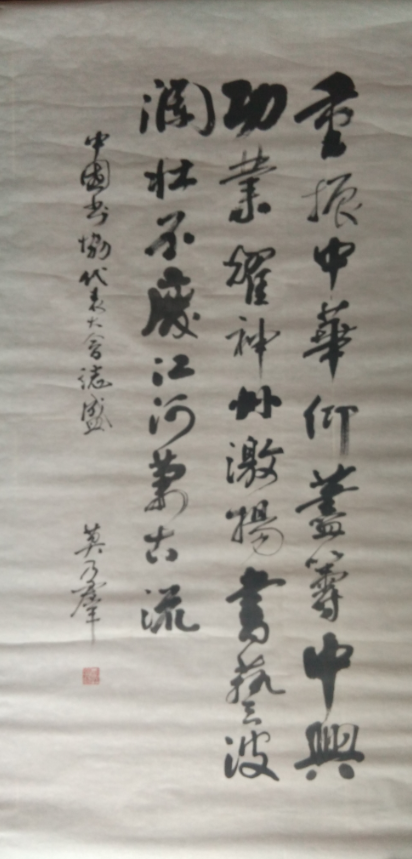 重振中華仰蓋籌中興
功業耀神州激揚書藝波
瀾壮不廢江河萬古流
中國书協代表大會誌盛
莫乃群